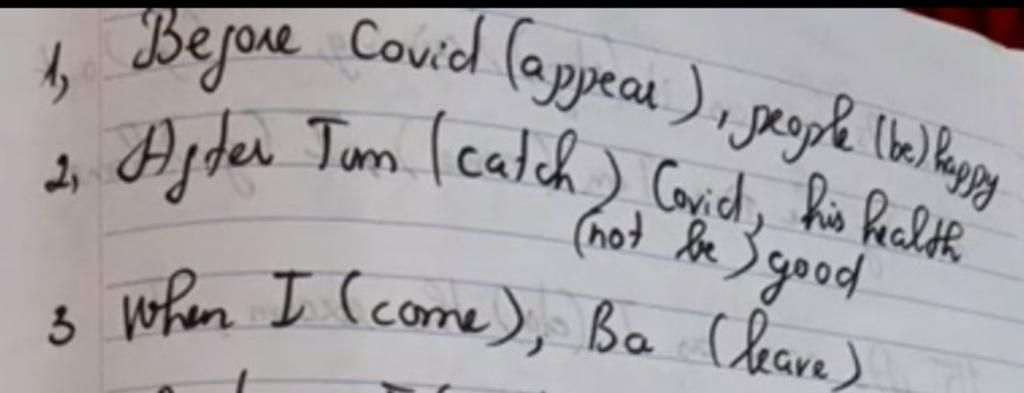 1, Before Covid (appear), people (be) happy
2, After Tom (catch) Covid, his health
(not be) good
3 When I (come), Ba (leave)